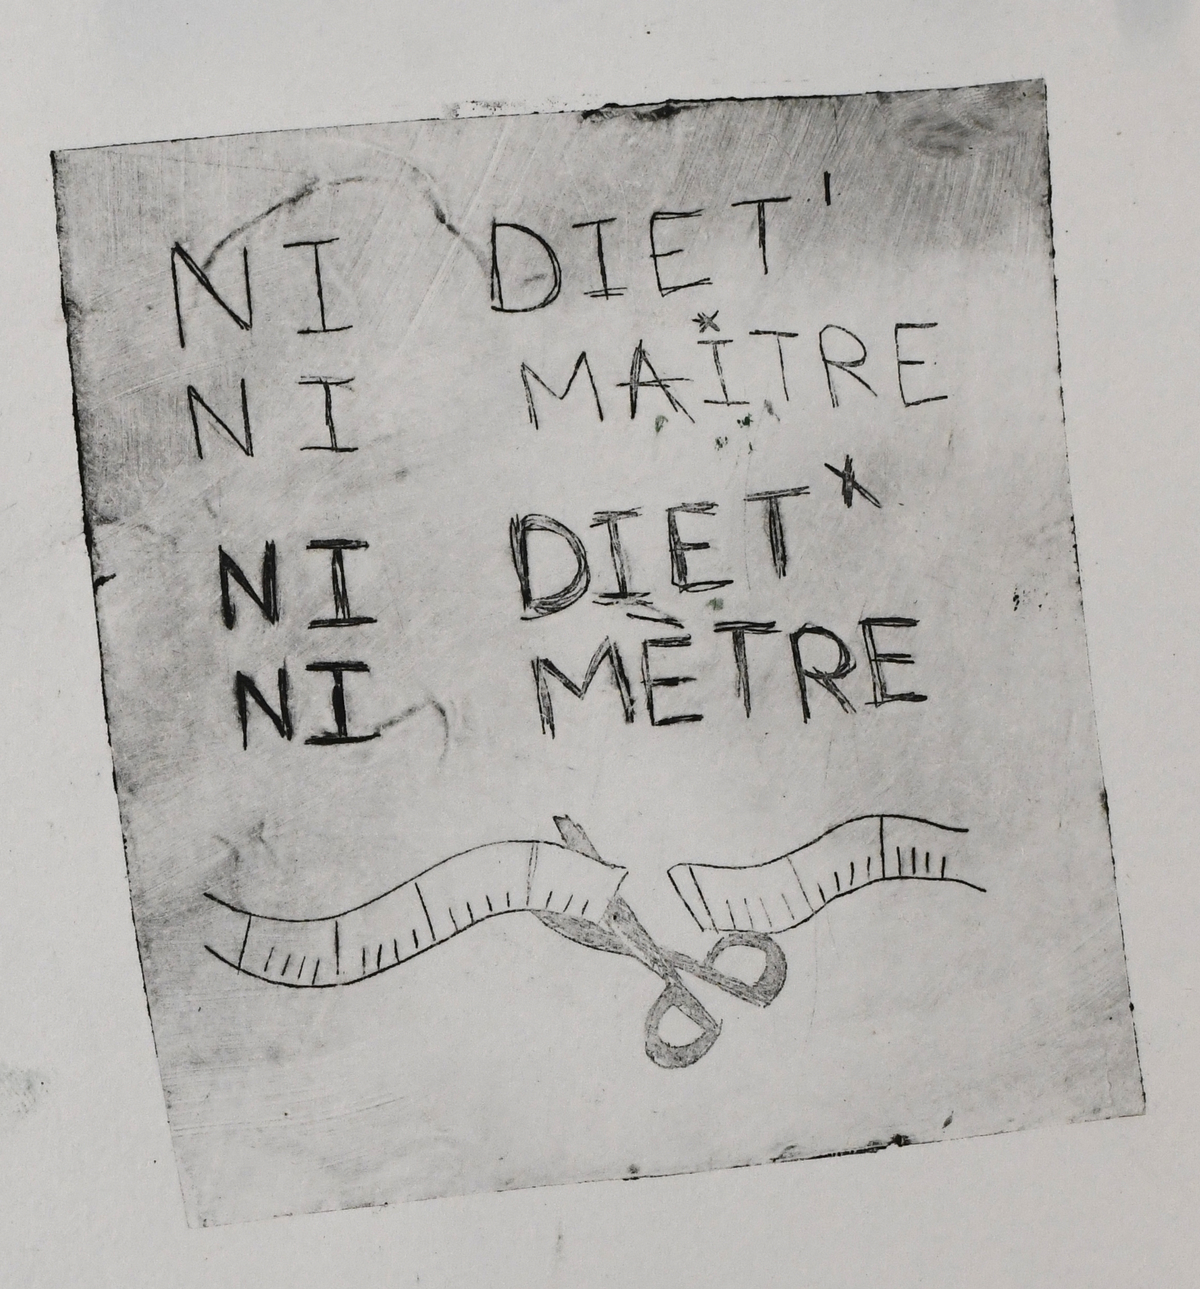 NI DIET'
NI MAÎTRE
NI DIET*
NI MÈTRE